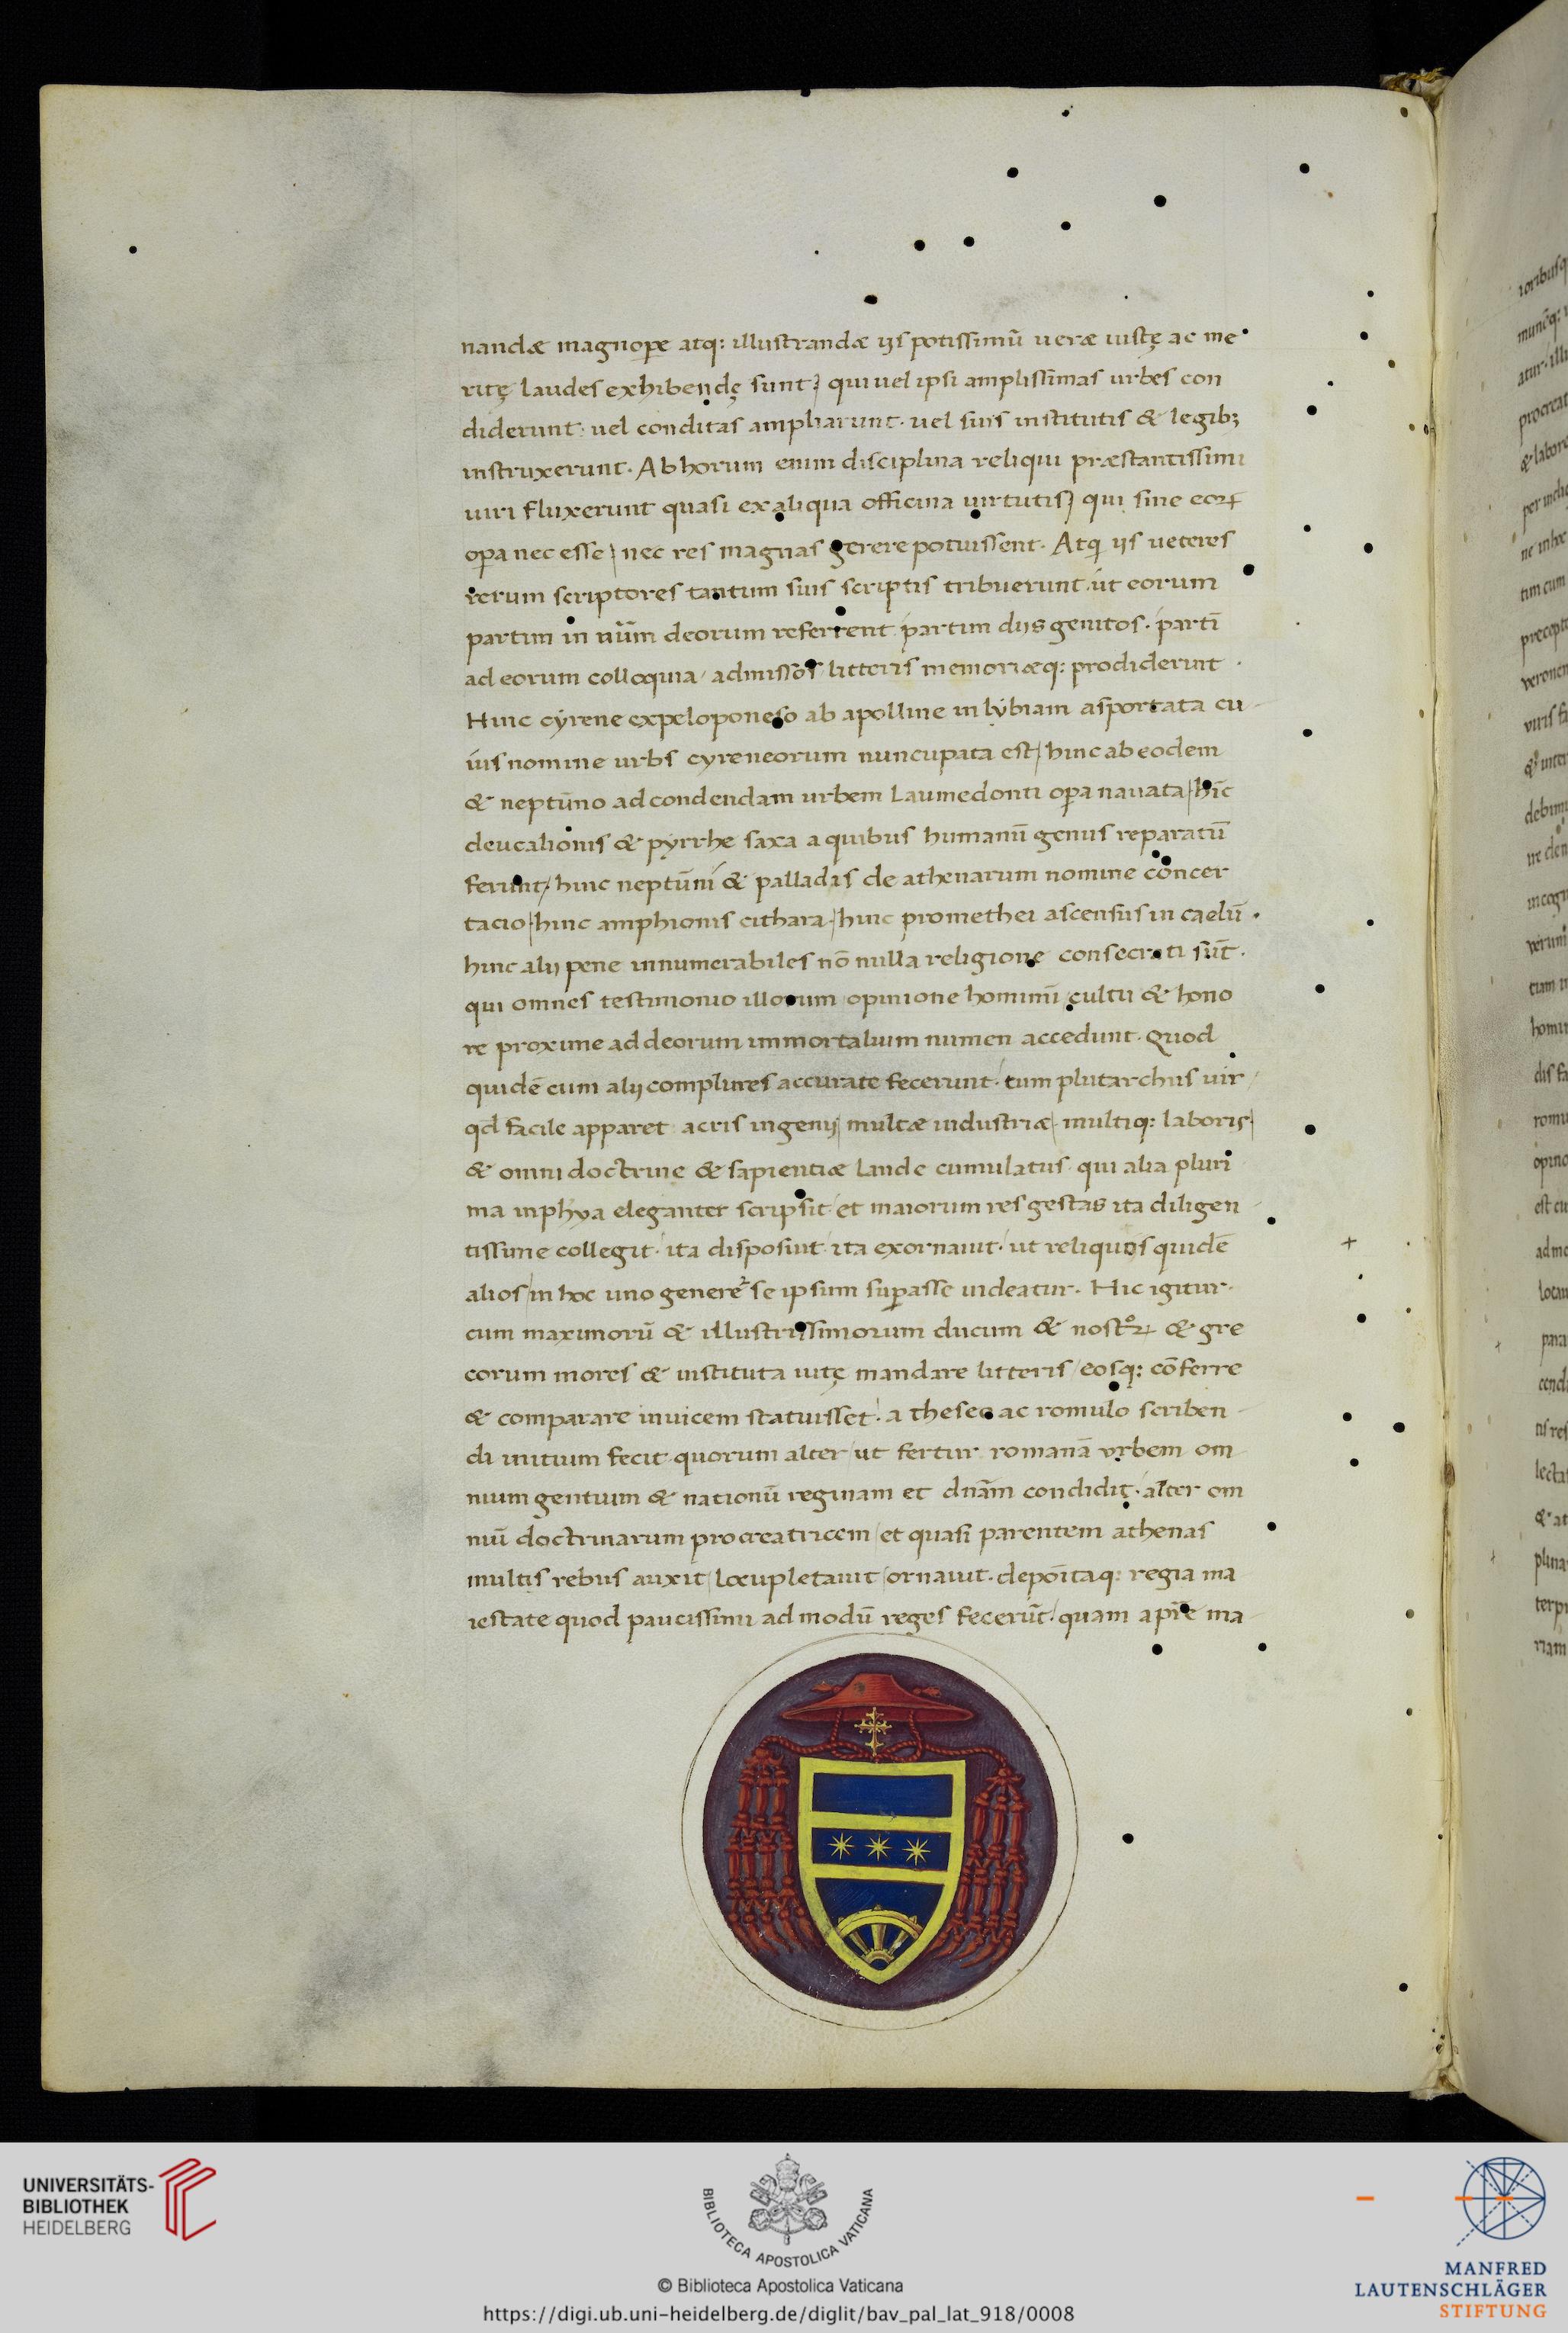 nandæ magnope atq: illustrandæ iis potissimũ ueræ iustę ac me
ritę laudes exhibendę sunt, qui uel ipsi amplissimas urbes con
diderunt: uel conditas ampliarunt. uel suis institutis & legib;
instruxerunt. Ab horum enim disciplina reliqui præstantissimi
uiri fluxerunt quasi ex aliqua officina uirtutis, qui sine eoꝝ
opa nec esse, nec res magnas gerere potuissent. Atq iis ueteres
rerum scriptores tantum suis scriptis tribuerunt. ut eorum
partim in nũm deorum referrent. partim diis genitos. partĩ
ad eorum colloquia / admissos litteris memoriæq: prodiderunt
Hinc cyrene expeloponeso ab apolline in lybiam asportata cu
ius nomine urbs cyreneorum nuncupata est, hinc ab eodem
& neptũno ad condendam urbem Laumedonti opa nauata, hĩc
deucalionis & pyrrhe saxa a quibus humanũ genus reparatũ
ferunt, hinc neptũni & palladis de athenarum nomine concer
tacio, hinc amphionis cithara, hinc promethei ascensus in caelũ.
hinc alii pene innumerabiles nõ nulla religione consecrati sũt.
qui omnes testimonio illorum / opinione hominũ, cultu & hono
re proxime ad deorum immortalium numen accedunt. Quod
quidẽ cum alii complures accurate fecerunt. tum plutarchus uir /
qd facile apparet acris ingenii, multæ industriæ, multiq: laboris,
& omni doctrine & sapientiæ laude cumulatus. qui alia pluri
ma inphya eleganter scripsit. et maiorum res gestas ita diligen
tissime collegit. ita disposuit. ita exornauit. ut reliquos quidẽ
alios, in hoc uno genere se ipsum supasse uideatur. Hic igitur.
cum maximorũ & illustrissimorum ducum & nostroꝝ & gre
corum mores & instituta uitę mandare litteris / eosq: cõferre
& comparare inuicem statuisset. a theseo ac romulo scriben
di initium fecit quorum alter / ut fertur romanã vrbem om
nium gentium & nationũ reginam et dnãm condidit. alter om
niũ doctrinarum procreatricem / et quasi parentem athenas
multis rebus auxit, locupletauit, ornauit. depoĩtaq: regia ma
iestate quod paucissimi ad modũ reges fecerũt. quam apĩe ma
UNIVERSITÄTS-
BIBLIOTHEK
HEIDELBERG
BIBLIOTECA APOSTOLICA VATICANA
© Biblioteca Apostolica Vaticana
https://digi.ub.uni-heidelberg.de/diglit/bav_pal_lat_918/0008
MANFRED
LAUTENSCHLÄGER
STIFTUNG